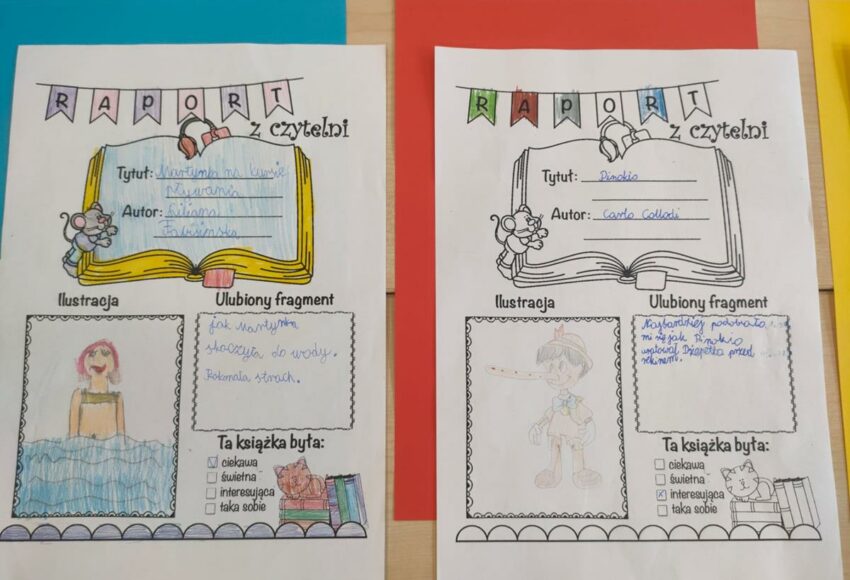 RAPORT
z czytelni
Tytuł: Martynka na kursie
pływania
Autor: Liliana
Fabisińska
Ilustracja
Ulubiony fragment
jak Martynka
skoczyła do wody.
Pokonała strach.
Ta książka była:
ciekawa
świetna
interesująca
taka sobie
RAPORT
z czytelni
Tytuł: Pinokio
Autor: Carlo Collodi
Ilustracja
Ulubiony fragment
Najbardziej podobało
mi się jak Pinokio
uratował Dżepetta przed
rekinem.
Ta książka była:
ciekawa
świetna
interesująca
taka sobie